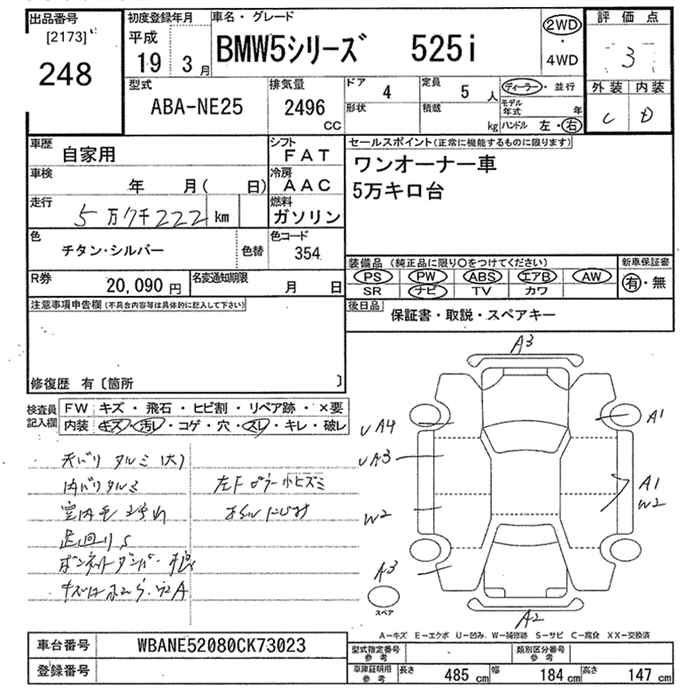 出品番号
[2173]
248
初度登録年月
平成
19 3月
車名・グレード
BMW5シリーズ 525i
2WD
・
4WD
評価点
3
外装 内装
C D
型式
ABA-NE25
排気量
2496
CC
ドア 4
定員 5 人
形状
積載 kg
ディーラー・並行
モデル年式 年
ハンドル 左・右
車歴
自家用
シフト
FAT
車検
年 月( 日)
冷房
AAC
走行
5万7千222 km
燃料
ガソリン
色
チタン・シルバー
色替
色コード
354
R券
20,090円
名変通知期限
月 日
セールスポイント(正常に機能するものに限ります)
ワンオーナー車
5万キロ台
装備品(純正品に限り○をつけてください)
新車保証書
PS PW ABS エアB AW
有・無
SR ナビ TV カワ
後日品
保証書・取説・スペアキー
注意事項申告欄(不具合内容等は具体的に記入して下さい)
修復歴 有〔箇所 〕
検査員記入欄
FW キズ・飛石・ヒビ割・リペア跡・×要
内装 キズ・汚レ・コゲ・穴・スレ・キレ・破レ
天バリタルミ(大)
内バリタルミ
左Fドラー小ヒズミ
足回りS
ボンネットダンパー
A3
UA4
A1
UA3
A1
W2
W2
A3
スペア
A2
A-キズ E-エクボ U-凹み W-補修跡 S-サビ C-腐食 XX-交換済
車台番号
WBANE52080CK73023
登録番号
型式指定番号
参考
類別区分番号
参考
車庫証明用
参考
長さ 485cm 幅 184cm 高さ 147cm